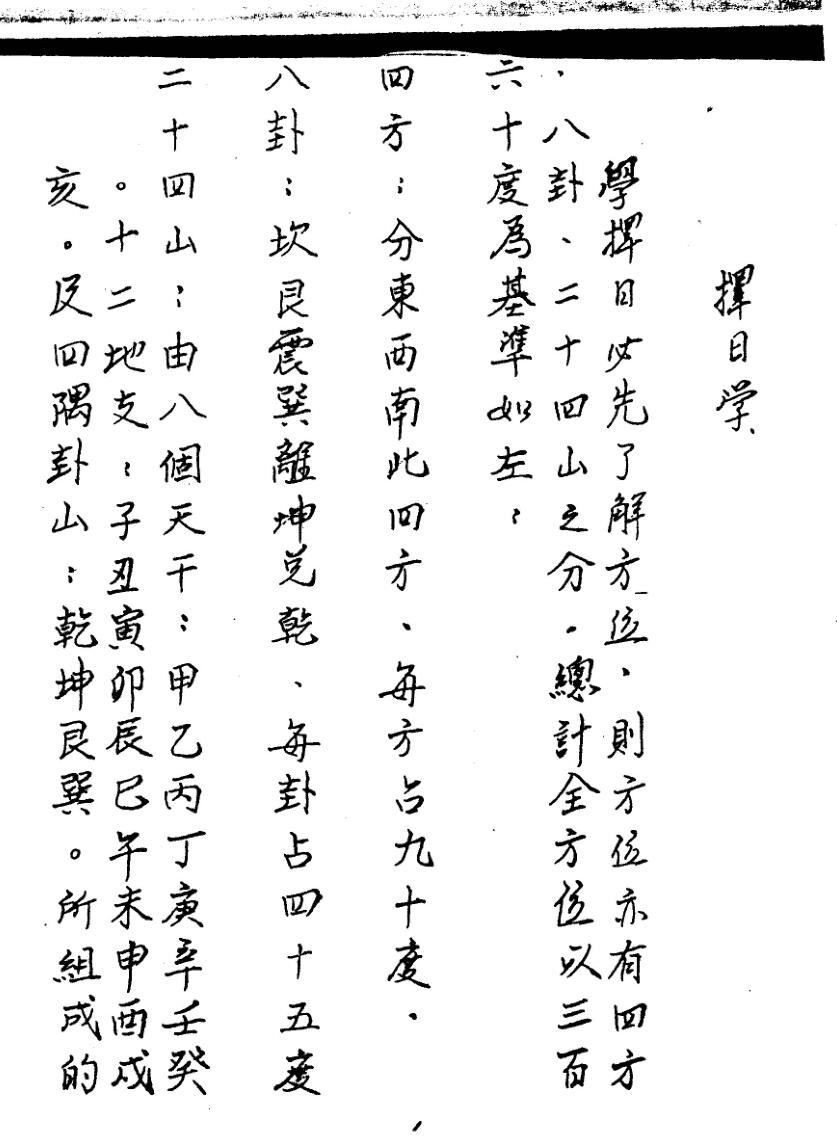 擇日学
學擇日必先了解方位、則方位亦有四方
、八卦、二十四山之分。總計全方位以三百
六十度為基準如左：
四方：分東西南北四方、每方占九十度。
八卦：坎艮震巽離坤兑乾、每卦占四十五度
二十四山：由八個天干：甲乙丙丁庚辛壬癸
。十二地支：子丑寅卯辰巳午未申酉戌
亥。及四隅卦山：乾坤艮巽。所組成的